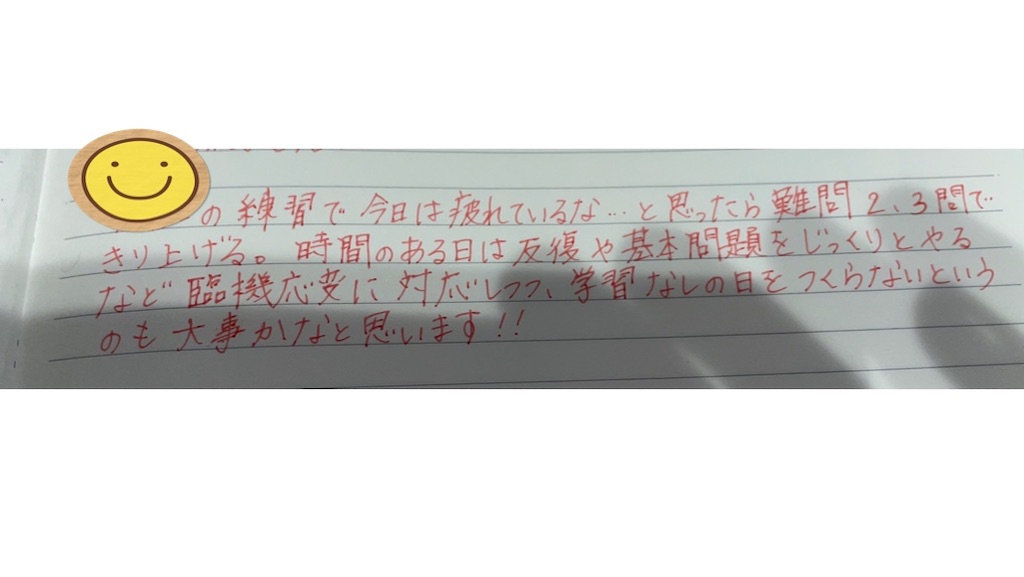 の練習で今日は疲れているな…と思ったら難問2、3問で
きり上げる。時間のある日は反復や基本問題をじっくりとやる
など臨機応変に対応しつつ、学習なしの日をつくらないという
のも大事かなと思います!!